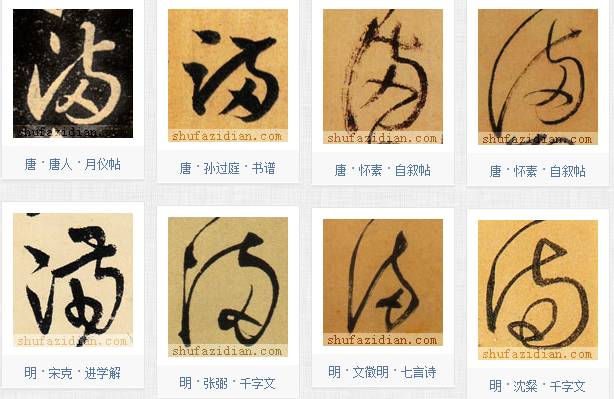 滿
shufazidian.com
唐·唐人·月仪帖
滿
shufazidian.com
唐·孙过庭·书谱
滿
shufazidian.com
唐·怀素·自叙帖
滿
shufazidian.com
唐·怀素·自叙帖
滿
shufazidian.com
明·宋克·进学解
滿
shufazidian.com
明·张弼·千字文
滿
shufazidian.com
明·文徵明·七言诗
滿
shufazidian.com
明·沈粲·千字文